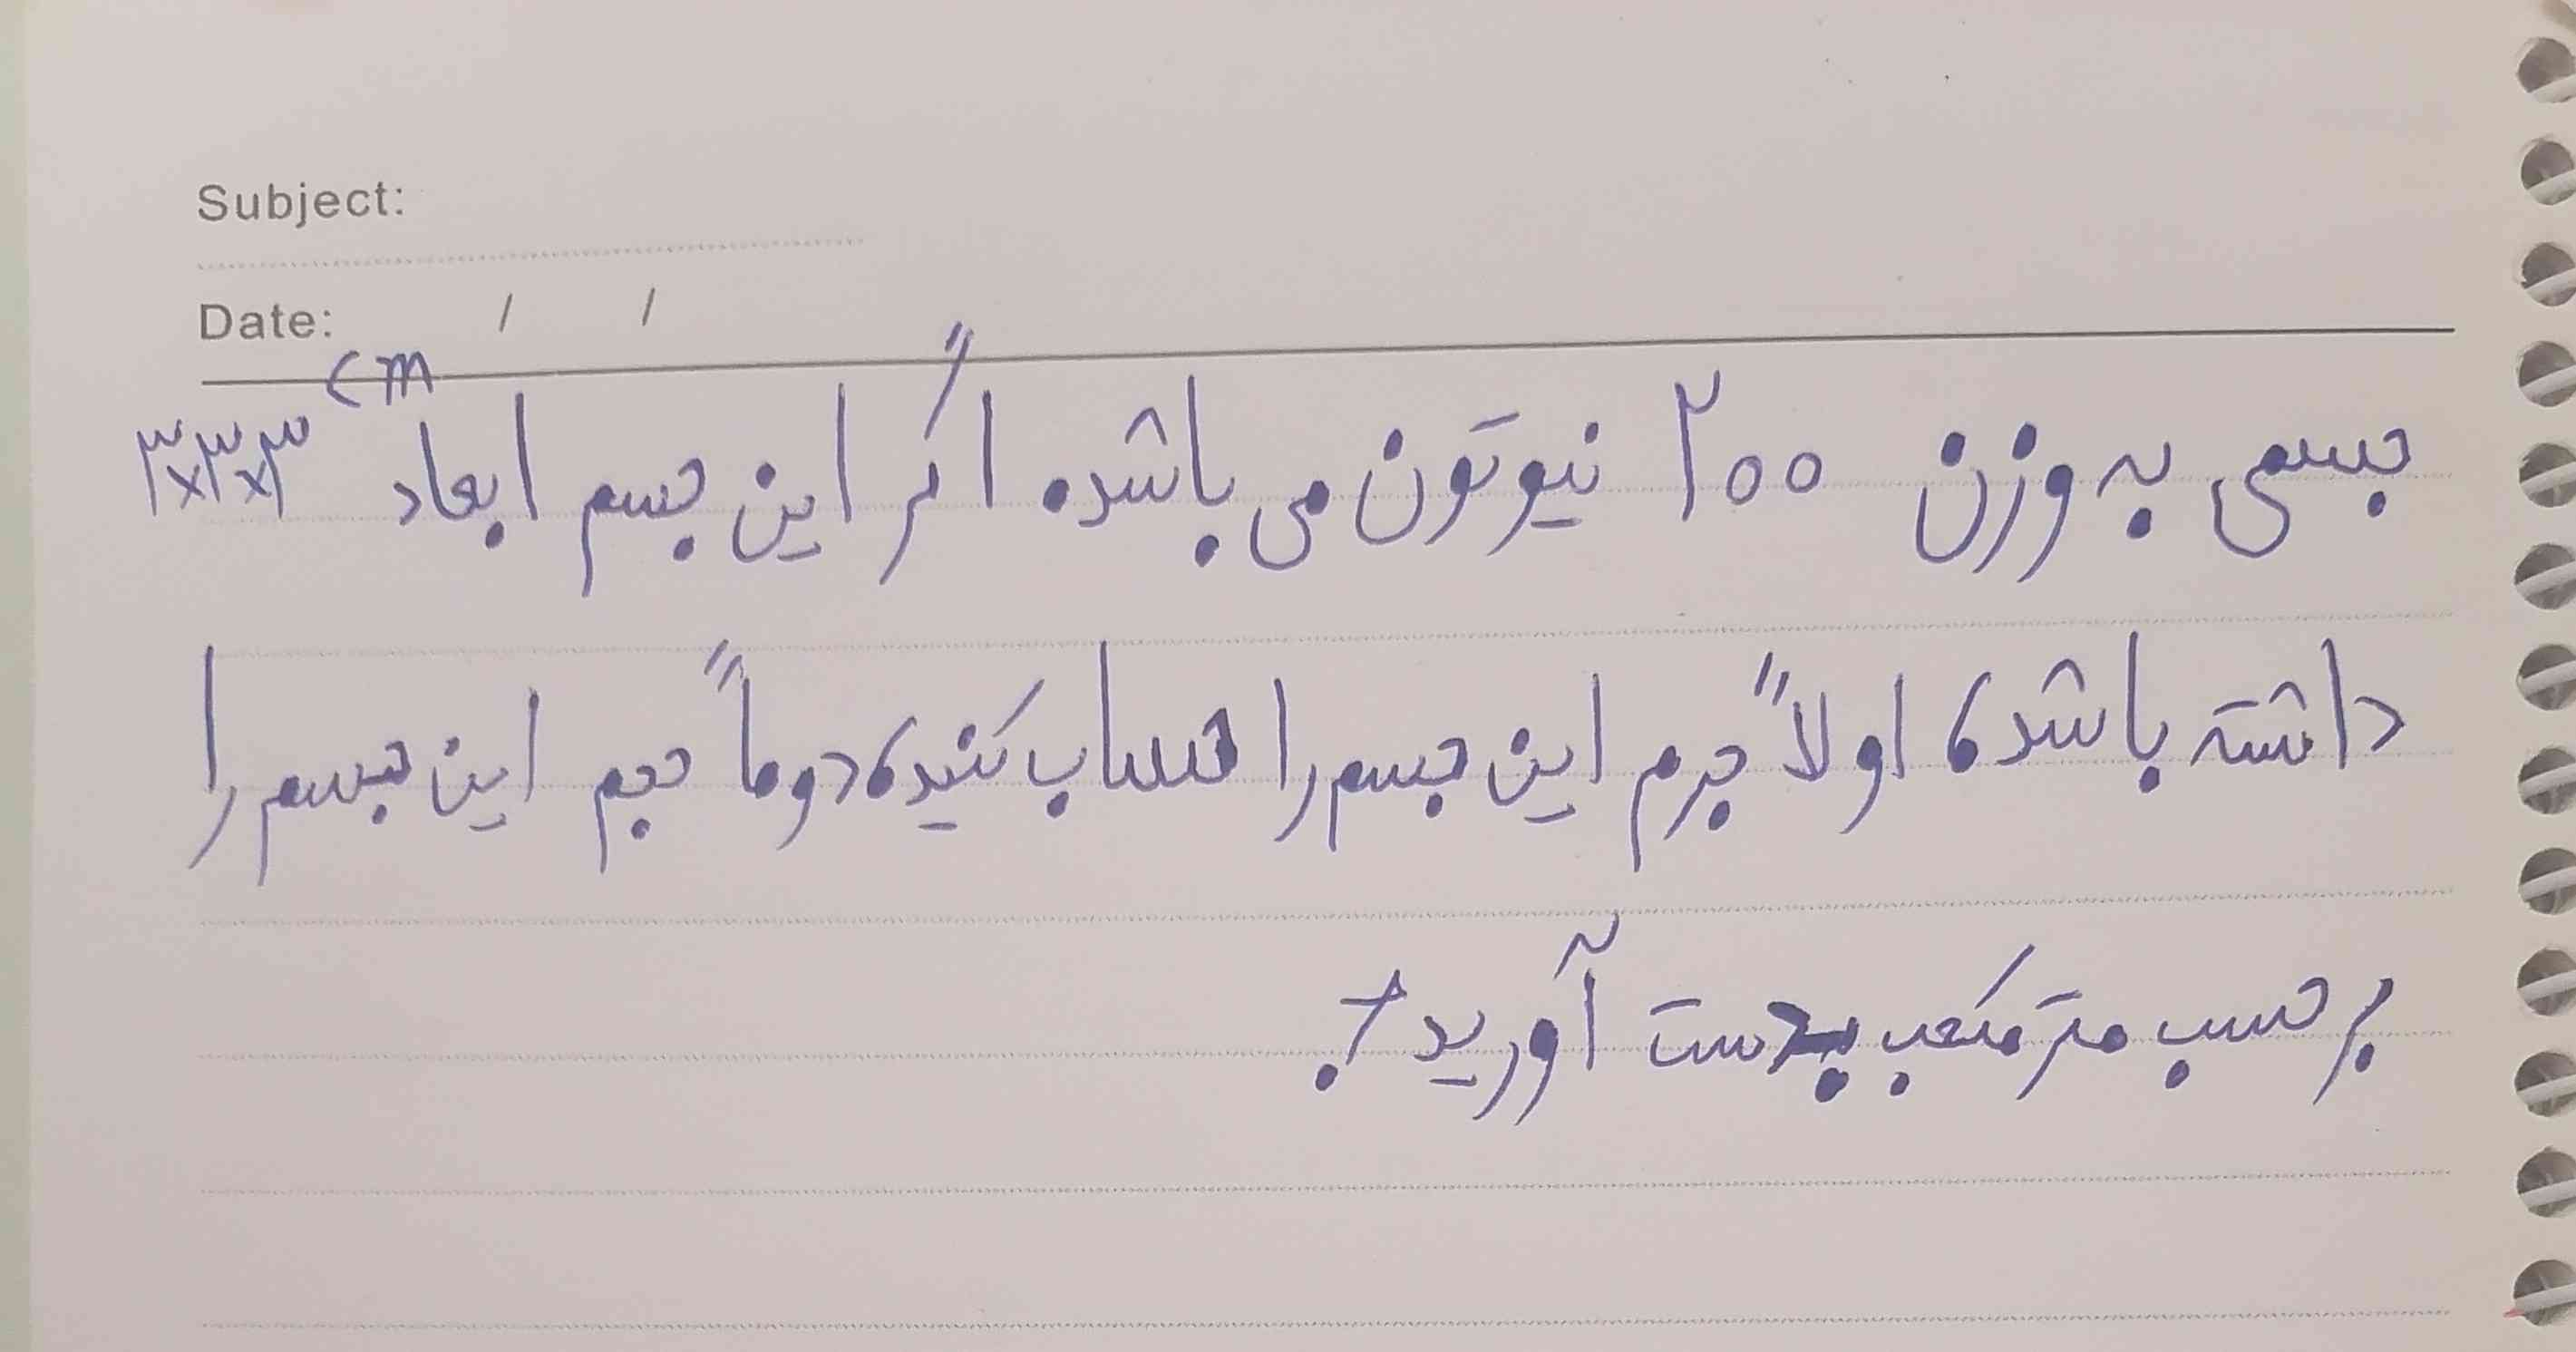 Subject:
Date: / /
جسمی به وزن ۲۰۰ نیوتون می باشد. اگر این جسم ابعاد ۳×۳×۳ cm
داشته باشد، اولاً جرم این جسم را حساب کنید، دوماً حجم این جسم را
بر حسب متر مکعب بدست آورید؟